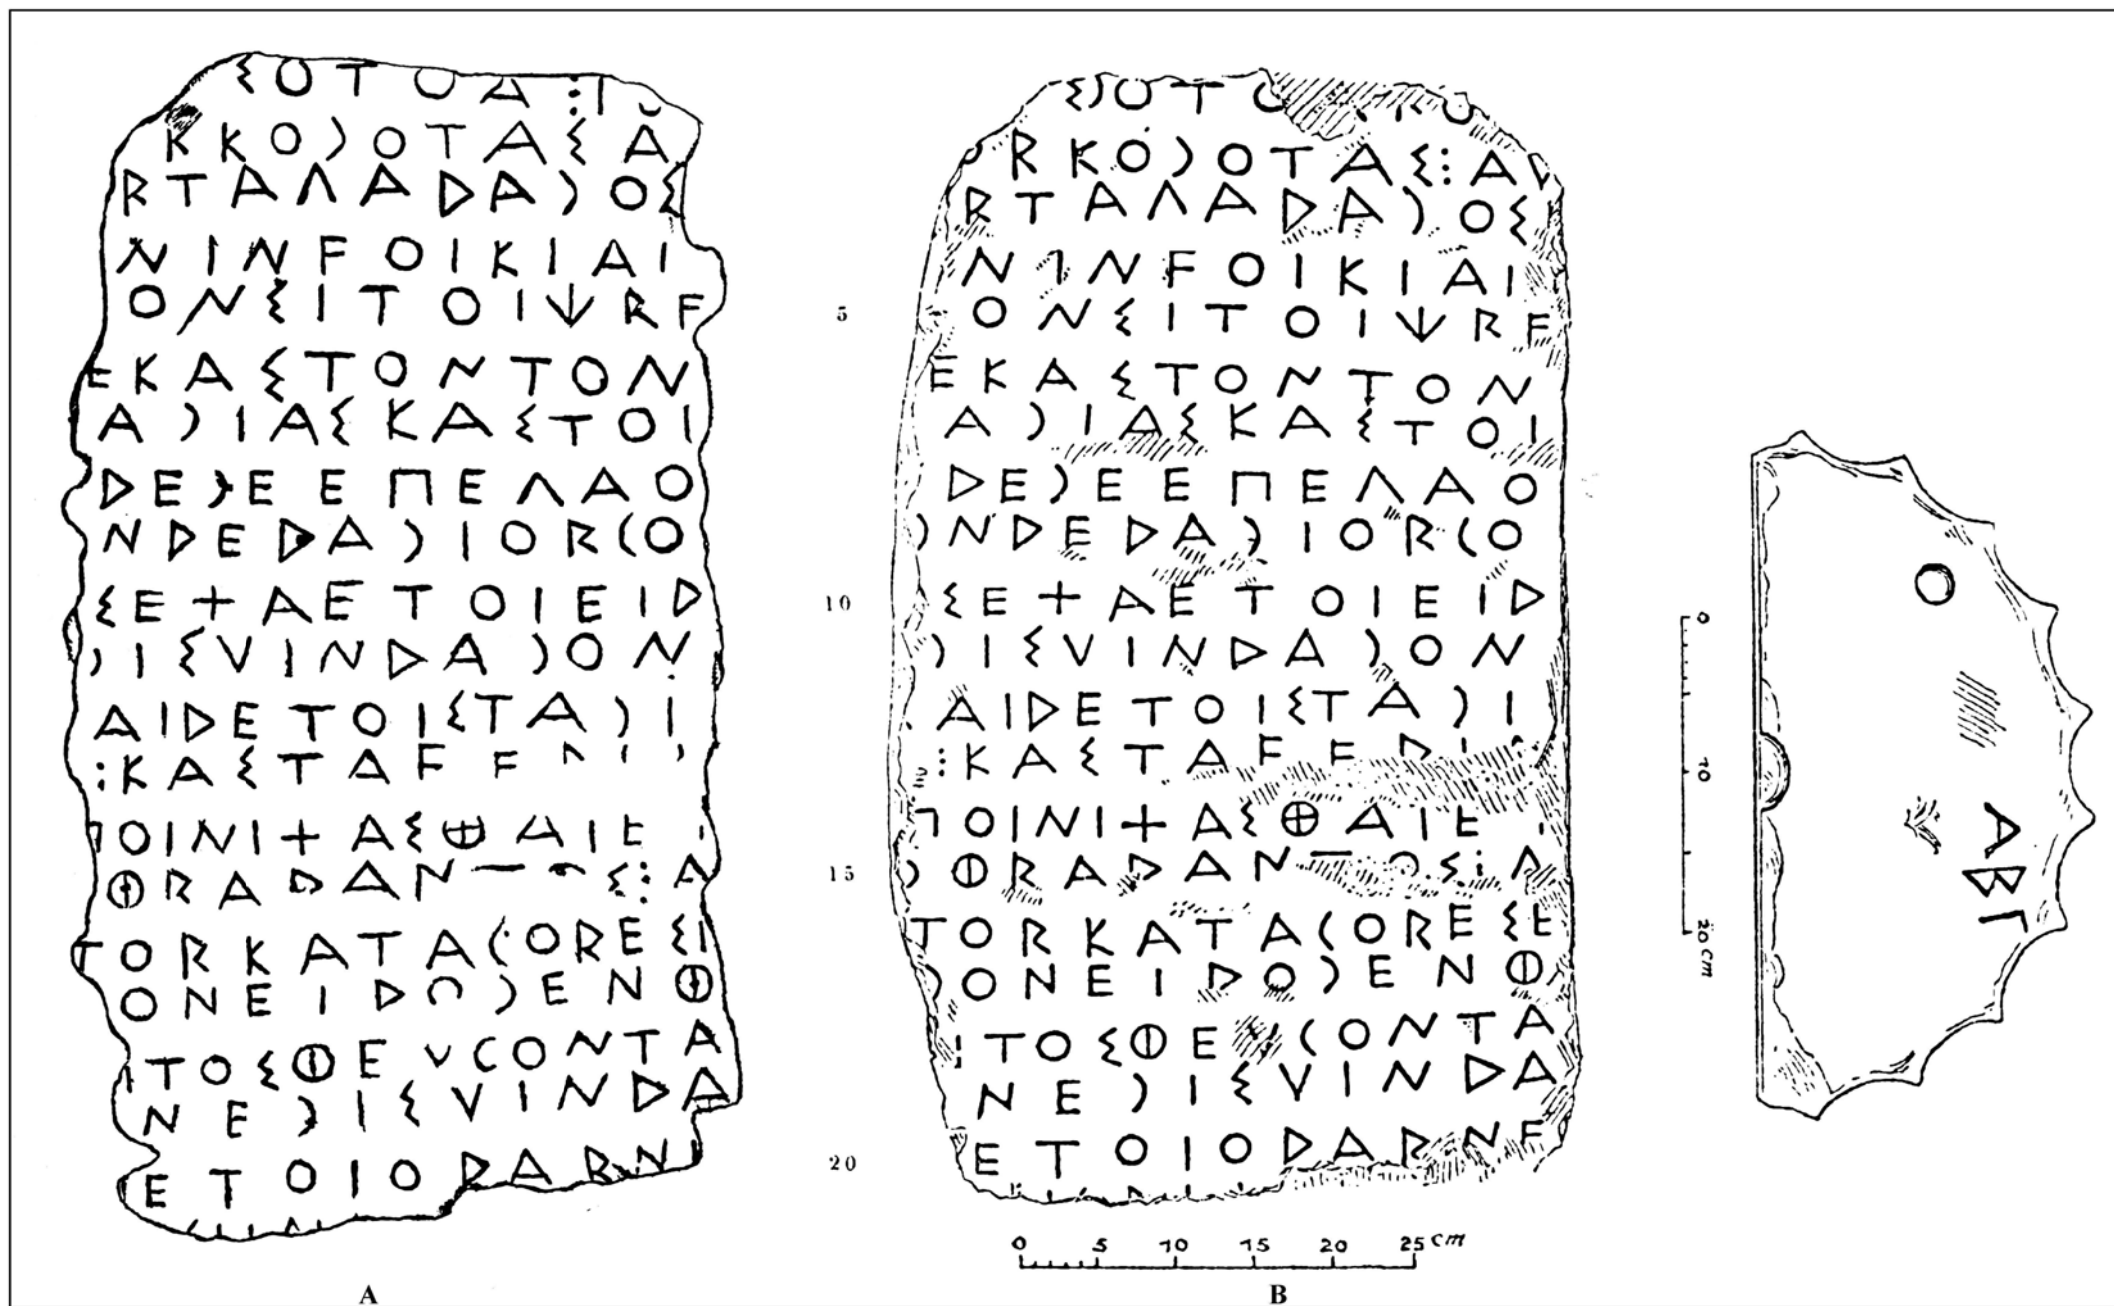 ΣΟΤΟΑ⁝Ι
ΚΚΟ)ΟΤΑΣΑ
ΡΤΑΛΑΔΑ)ΟΣ
ΝΙΝϜΟΙΚΙΑΙ
ΟΝΣΙΤΟΙΨΡϜ
ΕΚΑΣΤΟΝΤΟΝ
Α)ΙΑΣΚΑΣΤΟΙ
ΔΕ)ΕΕΠΕΛΑΟ
ΝΔΕΔΑ)ΙΟΡ(Ο
ΣΕ+ΑΕΤΟΙΕΙΔ
)ΙΣVΙΝΔΑ)ΟΝ
ΑΙΔΕΤΟΙΣΤΑ)Ι
⁝ΚΑΣΤΑϜϜ
ΠΟΙΝΙ+ΑΣ⊕ΑΙΕ
ΘΡΑΔΑΝΤΟΣ⁝Α
ΤΟΡΚΑΤΑ(ΟΡΕΣΙ
ΟΝΕΙΔΟ)ΕΝΘ
ΤΟΣΘΕV(ΟΝΤΑ
ΝΕ)ΙΣVΙΝΔΑ
ΕΤΟΙΟΔΑΡΝ
A
5
10
15
20
Σ)ΟΤΟ
ΡΚΟ)ΟΤΑΣ⁝Α
ΡΤΑΛΑΔΑ)ΟΣ
ΝΙΝϜΟΙΚΙΑΙ
ΟΝΣΙΤΟΙΨΡϜ
ΕΚΑΣΤΟΝΤΟΝ
Α)ΙΑΣΚΑΣΤΟΙ
ΔΕ)ΕΕΠΕΛΑΟ
)ΝΔΕΔΑ)ΙΟΡ(Ο
ΣΕ+ΑΕΤΟΙΕΙΔ
)ΙΣVΙΝΔΑ)ΟΝ
ΑΙΔΕΤΟΙΣΤΑ)Ι
⁝ΚΑΣΤΑϜΕΔ
ΠΟΙΝΙ+ΑΣ⊕ΑΙΕ
)ΘΡΑΔΑΝΤΟΣ⁝Α
ΤΟΡΚΑΤΑ(ΟΡΕΣΕ
)ΟΝΕΙΔΟ)ΕΝΘ
ΙΤΟΣΘΕV(ΟΝΤΑ
ΝΕ)ΙΣVΙΝΔΑ
ΕΤΟΙΟΔΑΡΝΕ
0 5 10 15 20 25 cm
B
0 10 20 cm
Ο
ΑΒΓ